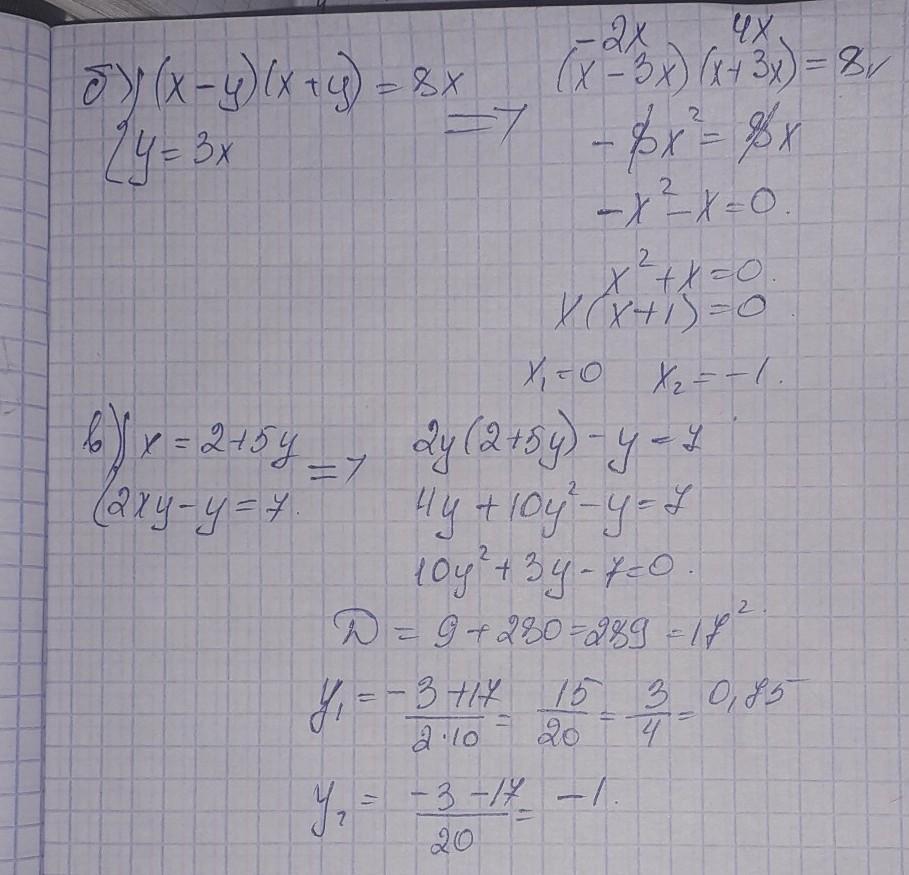 б) { (x-y)(x+y) = 8x
y = 3x
=>
-2x 4x
(x-3x)(x+3x) = 8x
-8x² = 8x
-x² - x = 0.
x² + x = 0.
x(x+1) = 0
x₁ = 0 x₂ = -1.
в) { x = 2+5y
2xy - y = 7.
=>
2y(2+5y) - y = 7
4y + 10y² - y = 7
10y² + 3y - 7 = 0.
D = 9 + 280 = 289 = 17².
y₁ = (-3+17)/(2·10) = 15/20 = 3/4 = 0,75
y₂ = (-3-17)/20 = -1.